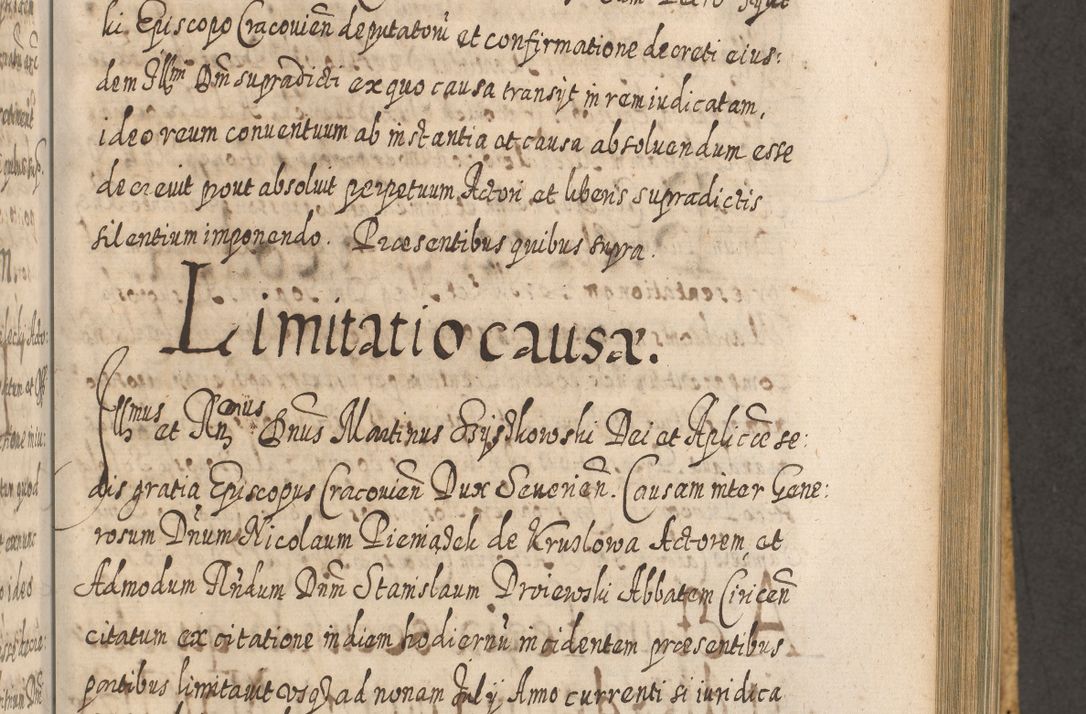 ki Episcopo Cracovien̄ deputatorū et confirmatione decreti eius:
dem Illm̄ Dn̄m supradicti ex quo causa transijt in rem iudicatam,
ideo reum conventuum ab instantia et causa absoluendum esse
decreuit prout absoluit perpetuum Actori et liberis supradictis
silentium imponendo. Præsentibus quibus supra.
Limitatio causæ.
Illmus et Rn̄dius Dn̄us Martinus Szyszkowski Dei et Aplicæ se:
dis gratia Episcopus Cracovien̄ Dux Severien̄. Causam inter Gene:
rosum Dn̄um Nicolaum Pieniążek de Kruslowa Actorem et
Admodum Rn̄dum Dn̄m Stanislaum Droiewski Abbatem Ciricen̄
citatum ex citatione in diem hodiernū incidentem præsentibus
partibus limitauit usqȝ ad nonam July Anno currenti si iuridica